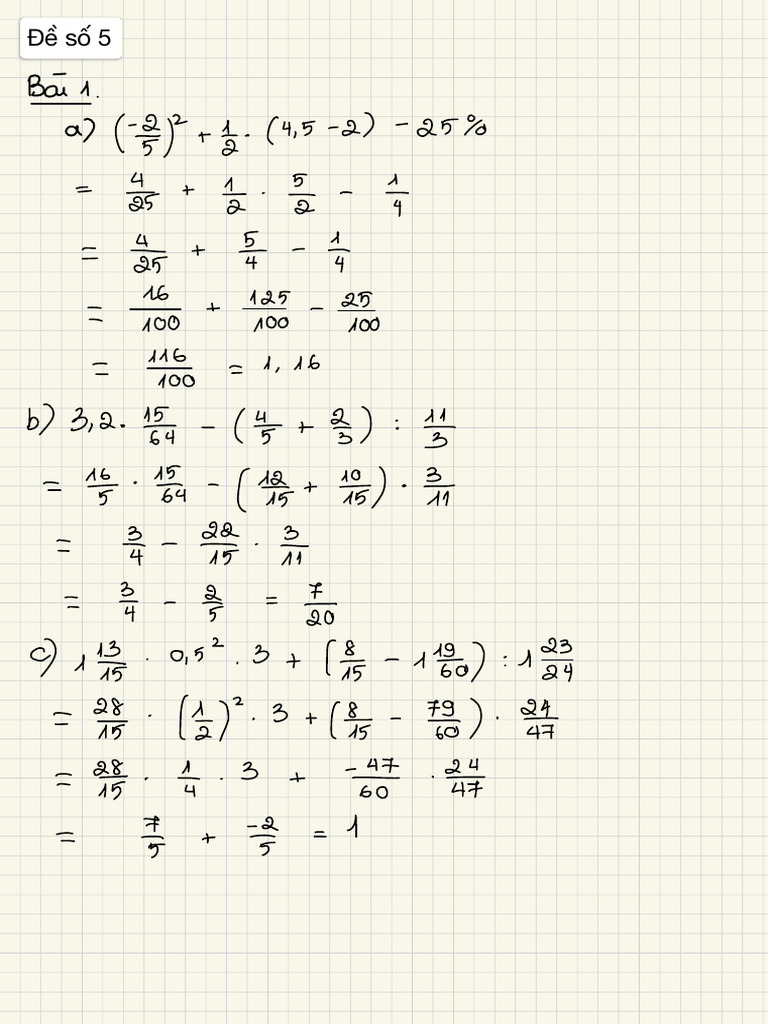 Đề số 5
Bài 1.
a) (-2/5)² + 1/2 . (4,5 - 2) - 25%
= 4/25 + 1/2 . 5/2 - 1/4
= 4/25 + 5/4 - 1/4
= 16/100 + 125/100 - 25/100
= 116/100 = 1,16
b) 3,2 . 15/64 - (4/5 + 2/3) : 11/3
= 16/5 . 15/64 - (12/15 + 10/15) . 3/11
= 3/4 - 22/15 . 3/11
= 3/4 - 2/5 = 7/20
c) 1 13/15 . 0,5² . 3 + (8/15 - 1 19/60) : 1 23/24
= 28/15 . (1/2)² . 3 + (8/15 - 79/60) . 24/47
= 28/15 . 1/4 . 3 + -47/60 . 24/47
= 7/5 + -2/5 = 1